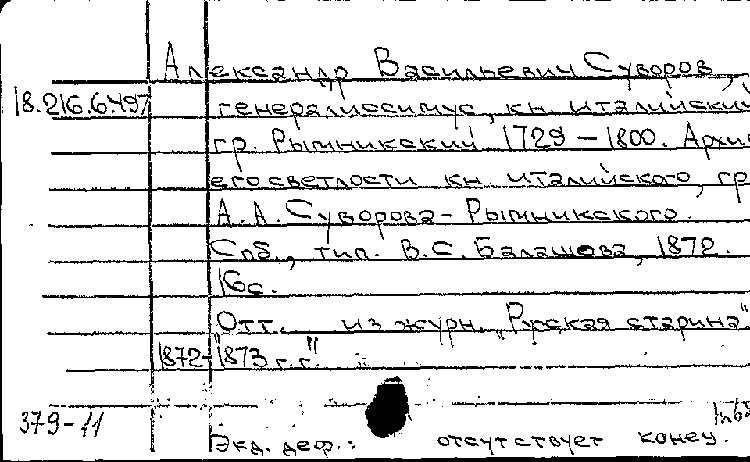 Александр Васильевич Суворов,
18.216.6497 генералиссимус, кн. италийский
гр. Рымникский 1729 – 1800. Архи
его светлости кн. италийского, гр
А. А. Суворова-Рымникского.
Спб., тип. В. С. Балашова, 1872.
16с.
Отт. из журн. "Русская старина"
1872-"1873 г.г."
379-11
Экз. деф.: отсутствует конец.